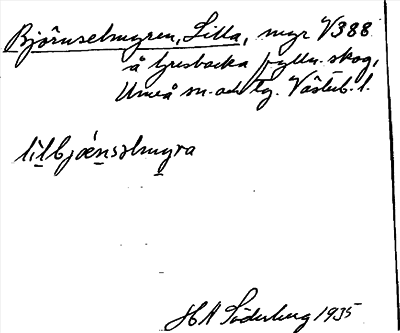 Björnselmyren, Lilla, myr V388
å Ljusbacka fylln. skog,
Umeå sn. och tg. Västerb. l.
lilbjænsəlmyra
HA Söderberg 1935